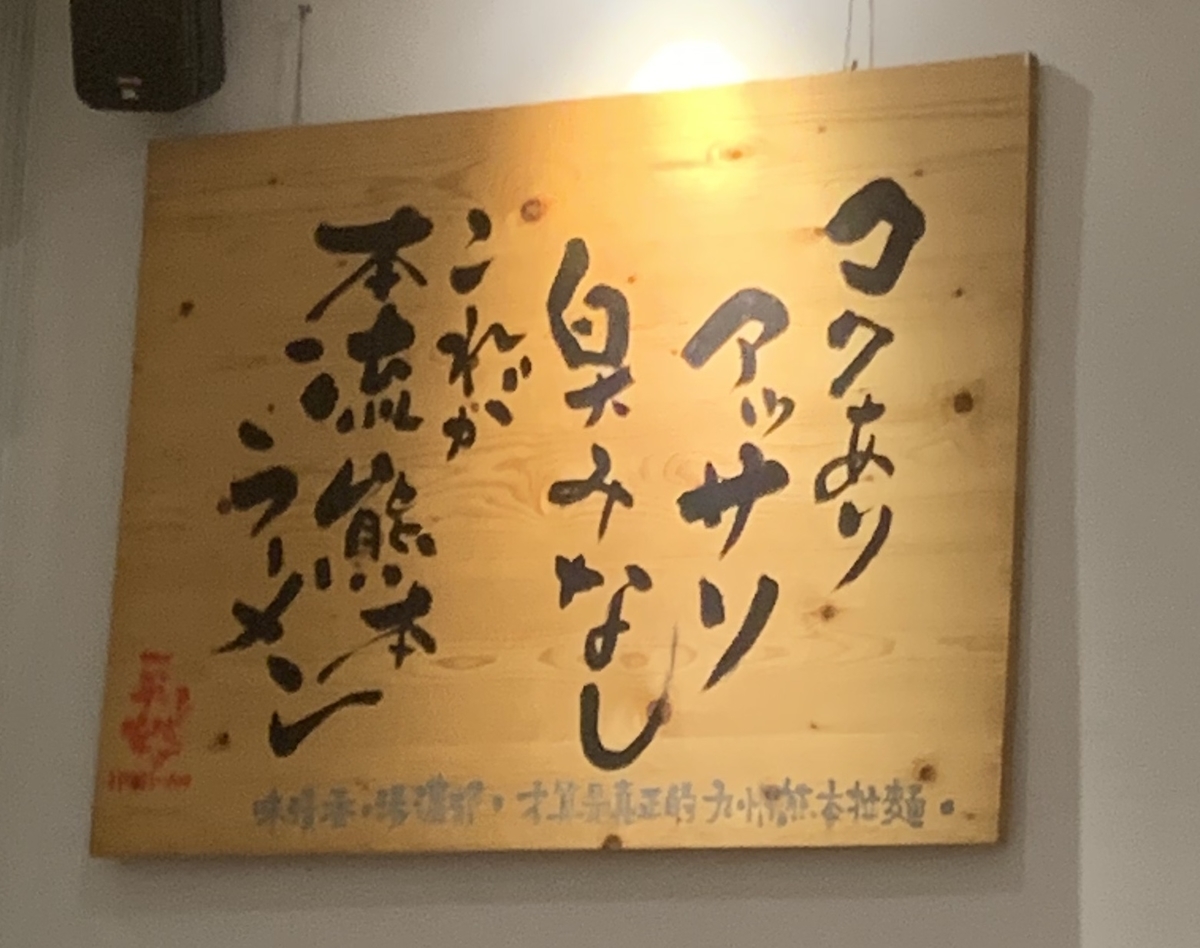 コクあり
アッサリ
臭みなし
これが
本流熊本
ラーメン
味 香 湯濃郁，才算是真正的九州熊本拉麵。